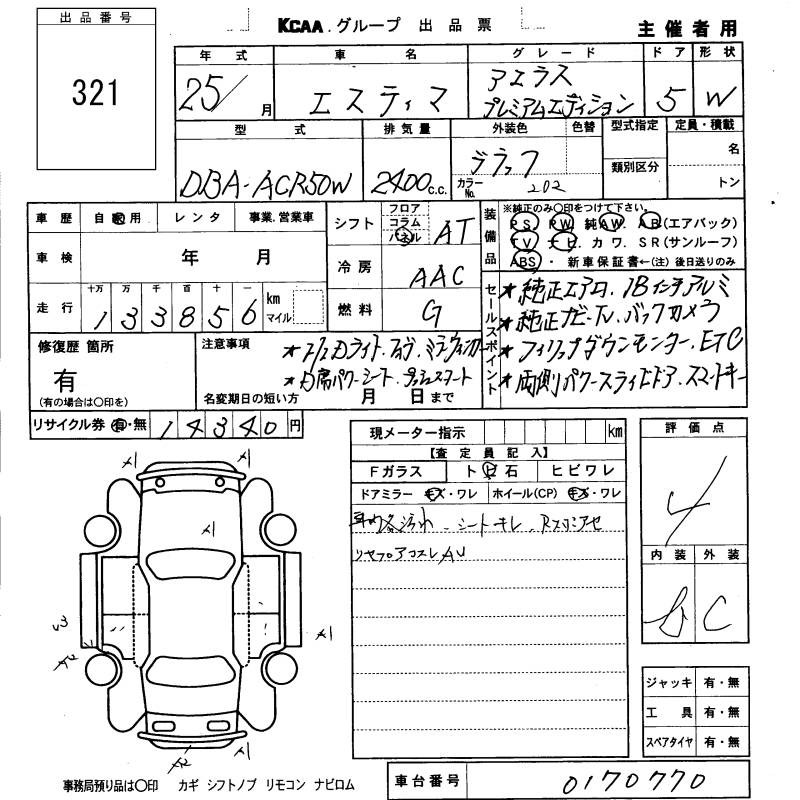 出品番号
321
KCAA.グループ 出品票
主催者用
年式 車名 グレード ドア 形状
25/ 月 エスティマ アエラス プレミアムエディション 5 W
型式 排気量 外装色 色替 型式指定 定員・積載
DBA-ACR50W 2400c.c. ブラック カラーNo. 202 類別区分 名 トン
車歴 自家用 レンタ 事業、営業車
車検 年 月
走行 十万 万 千 百 十 一
133856 km マイル
シフト フロア コラム パネル AT
冷房 AAC
燃料 G
装備品 ※純正のみ〇印をつけて下さい。
PS. PW. 純AW. AB(エアバック)
TV. ナビ. カワ. SR(サンルーフ)
ABS・新車保証書←(注)後日送りのみ
セールスポイント
★純正エアロ.18インチアルミ
★純正ナビ・TV.バックカメラ
★フィリップダウンモニター.ETC
★両側パワースライドドア.スマートキー
修復歴 箇所
有
(有の場合は〇印を)
注意事項
名変期日の短い方 月 日まで
リサイクル券 有・無 14340円
現メーター指示 km
【査定員記入】
Fガラス ト ビ 石 ヒビワレ
ドアミラー キズ・ワレ ホイール(CP) キズ・ワレ
シートキレ
評価点
4
内装 外装
C
ジャッキ 有・無
工具 有・無
スペアタイヤ 有・無
A1 A1
A1
A1
A2
A2 A1
事務局預り品は〇印 カギ シフトノブ リモコン ナビロム
車台番号 0170770